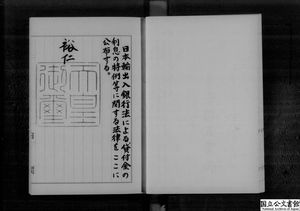 日本輸出入銀行法による貸付金の
利息の特例等に関する法律をここに
公布する。
裕仁
天皇
御璽
国立公文書館
National Archives of Japan